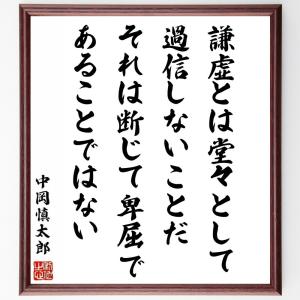 謙虚とは堂々として
過信しないことだ
それは断じて卑屈で
あることではない
中岡慎太郎